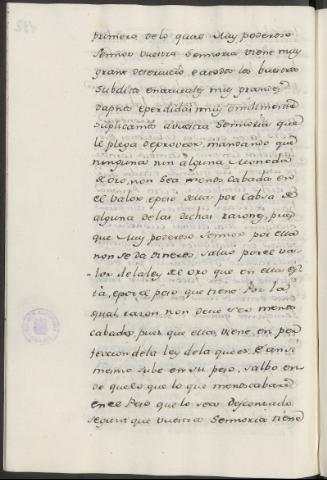 primera, de lo qual Muy poderoso
Señor Vuestra Señoria viene muy
grant deservicio e a todos los vuestros
Subditos e naturales muy grandes
dapños e perdidas muy omilmente
suplicamos a vuestra Señoria que
le plega de proveer, mandando que
ninguna nin alguna Moneda
de oro, non sea menos cabada en
el valor e precio della por cabsa de
alguna de las dichas razones, pues
que Muy poderoso Señor por ella
non se da dineros, salvo por el va-
lor de la ley de oro que en ella es-
tá, e por el peso que tiene. Por la
qual razon, non deve ser menos
cabada, pues que ella viene en per-
feccion de la ley de la que es. E ansi
mismo sube en su peso, salbo en
de quelo que lo que menoscabare
en el Peso que lo sea Descontado
segunt que vuestra Señoria tiene